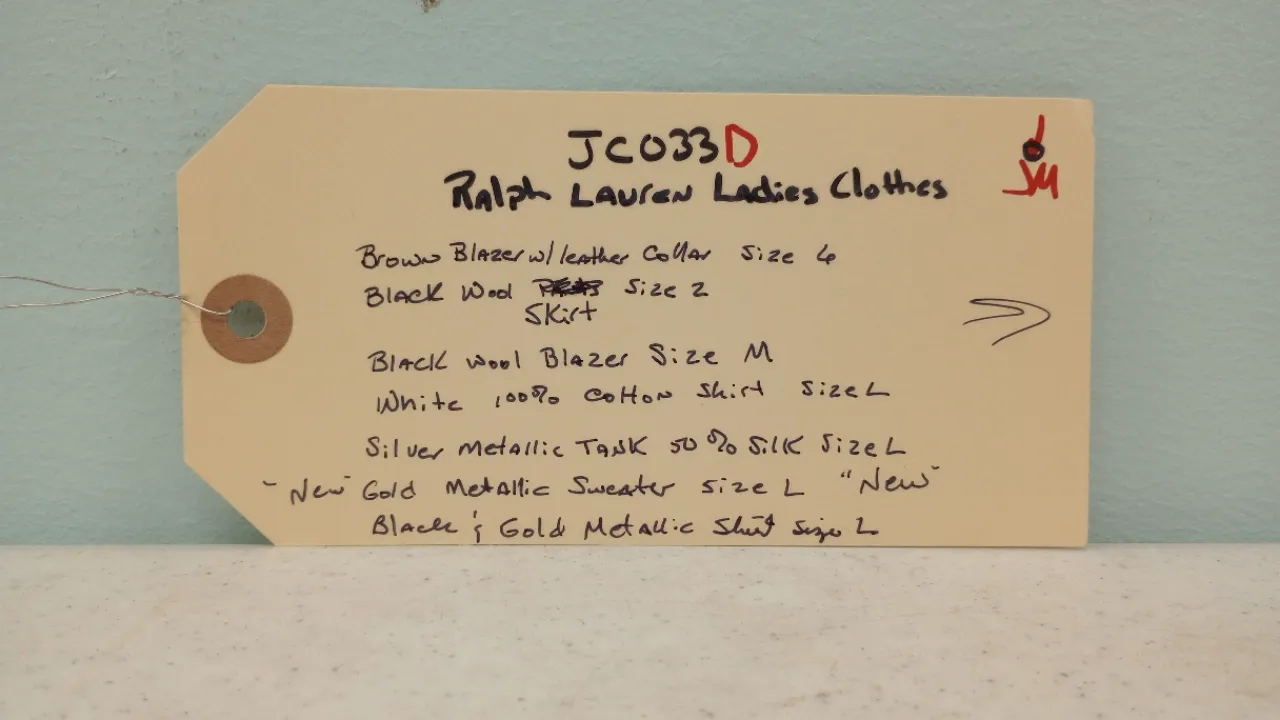 JC033D
JM
Ralph Lauren Ladies Clothes
Brown Blazer w/leather Collar Size 6
Black Wool Size 2
Skirt
Black Wool Blazer Size M
White 100% Cotton Shirt Size L
Silver Metallic Tank 50% Silk Size L
"New" Gold Metallic Sweater Size L "New"
Black & Gold Metallic Shirt Size L